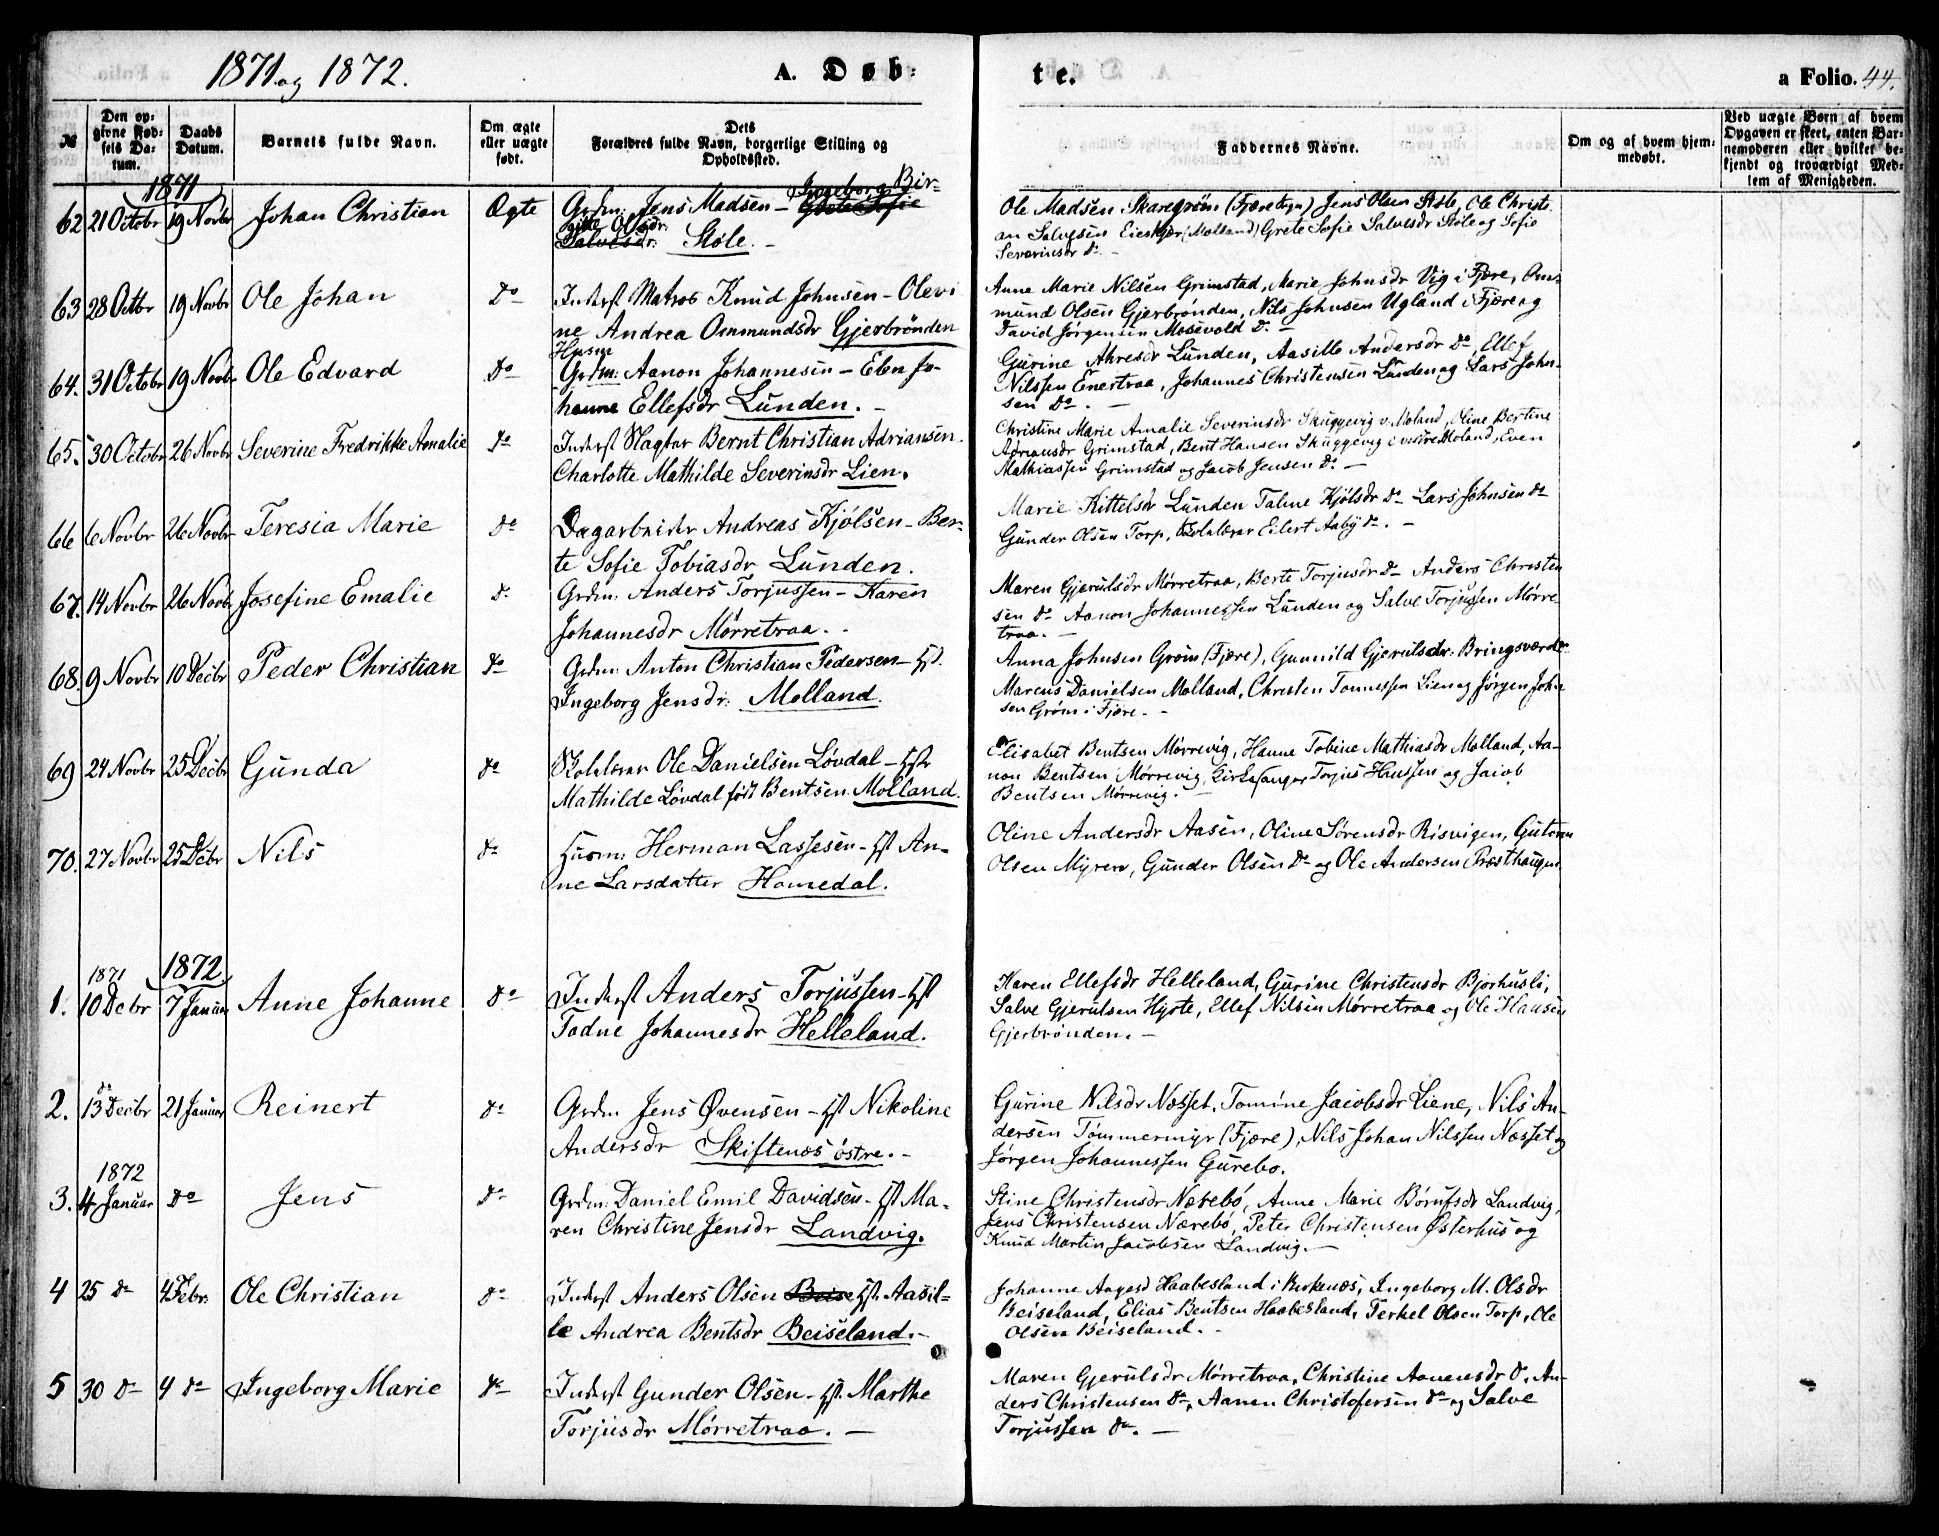 1871 og 1872.
A. Døb-
te.
a Folio. 44.
№
Den op-
givne Fød-
sels Da-
tum.
Daabs
Datum.
Barnets fulde Navn.
Om ægte
eller uægte
født.
Dets
Forældres fulde Navn, borgerlige Stilling og
Opholdssted.
Faddernes Navne.
Om og af hvem hjem-
medøbt.
Ved uægte Børn af hvem
Opgaven er skeet, enten Bar-
nemoderen eller hvilket be-
kjendt og troværdigt Med-
lem af Menigheden.
1871
62 21 Octobr 19 Novbr Johan Christian Ægte Grdm: Jens Madsen - Grete Sofie Ingeborg Bir-
gitte Olsdr.
Salvesdr: Støle. -
Ole Madsen Skaregrøm (Fjære sogn) Jens Olsen Støle, Ole Christi
an Salvesen Eieskjær (Molland) Grete Sofie Salvesdr Støle og Sofie
Severinsdr Do. -
63 28 Octbr 19 Novbr Ole Johan Do Inderst Matros Knud Johnsen - Olevi
ne Andrea Ommundsdr Gjerbrønden
Anne Marie Nilsen Grimstad, Marie Johnsdr Vig i Fjære, Om-
mund Olsen Gjerbrønden, Nils Johnsen Ugland i Fjære og
David Jørgensen Mosevold Do. -
64. 31 Octobr 19 Novbr Ole Edvard Do Husm
Grdm: Aanon Johannesen - Elen Jo-
hanne Ellefsdr Lunden. -
Gurine Ahresdr Lunden, Aasille Andersdr Do, Ellef
Nilssen Enertraa, Johannes Christensen Lunden og Lars John-
sen Do. -
65. 30 Octobr 26 Novbr Severine Fredrikke Amalie Do Inderst Slagter Bernt Christian Adriansen.
Charlotte Mathilde Severinsdr Lien.
Christine Marie Amalie Severinsdr Skuggevig v. Moland, Oline Bertine
Adriansdr Grimstad, Bent Hansen Skuggevig i vestre Moland, Even
Mathiassen Grimstad og Jacob Jensen Do. -
66 6 Novbr 26 Novbr Teresia Marie Do Dagarbeider Andreas Kjølsen - Ber-
te Sofie Tobiasdr Lunden.
Marie Kittelsdr Lunden Taline Kjølsdr Do - Lars Johnsen Do
Gunder Olsen Torp, Skolelærer Eilert Aaby Do. -
67. 14 Novbr 26 Novbr Josefine Emalie Do Grdm: Anders Torjussen - Karen
Johannesdr Mørretraa. -
Maren Gjerulsdr Mørretraa, Berte Torjusdr Do Anders Christen
sen Do Aanon Johannessen Lunden og Salve Torjussen Mørre-
traa. -
68. 9 Novbr 10 Decbr Peder Christian Do Grdm: Anton Christian Pedersen - Hst.
Ingeborg Jensdr: Molland.
Anna Johnsen Grøm (Fjære), Gunnild Gjerulsdr: Bringsværd
Marcus Danielsen Molland, Christen Tønnessen Lien og Jørgen John
sen Grøm i Fjære. -
69 24 Novbr 25 Decbr Gunda Do Skolelærer Ole Danielsen Løvdal - Hst
Mathilde Løvdal født Bentsen Molland.
Elisabet Bentsen Mørrevig, Hanne Tobine Mathiasdr Molland, Aa-
non Bentsen Mørrevig, Kirkesanger Torjus Hanssen og Jacob
Bentsen Mørrevig. -
70. 27 Novbr 25 Decbr Nils Do Husm: Herman Lassesen - Hst An-
ne Larsdatter Homedal.
Oline Andersdr Aasen, Oline Sørensdr Risvigen, Gutorm
Olsen Myren, Gunder Olsen Do og Ole Andersen Præsthaugen
1871 1872
1. 10 Decbr 7 Januar Anne Johanne Do Inderst Anders Torjussen - Hst
Tadne Johannesdr Helleland.
Karen Ellefsdr Helleland, Gurine Christensdr Bjorhusli,
Salve Gjerulsen Hyrte, Ellef Nilsen Mørretraa og Ole Hansen
Gjerbrønden. -
2. 13 Do Decbr 21 Januar Reinert Do Grdm Jens Øvensen - Hst Nikoline
Andersdr Skiftenæs østre. -
Gurine Nilsdr Næsset, Tomine Jacobsdr Liene, Nils An-
dersen Tømmermyr (Fjære), Nils Johan Nilssen Næsset og
Jørgen Johannessen Gurebo.
1872
3. 4 Januar Do Jens Do Grdm: Daniel Emil Davidsen - Hst Ma-
ren Christine Jensdr Landvig.
Stine Christensdr Nærebø, Anne Marie Børufsdr Landvig,
Jens Christensen Nærebø, Peter Christensen Østerhus og
Knud Martin Jacobsen Landvig. -
4 25 Do 4 Febr. Ole Christian Do Inderst Anders Olsen Beise Hst. Aasil-
le Andrea Bentsdr Beiseland. -
Johanne Aagesd Haabesland i Birkenæs, Ingeborg M. Olsdr
Beiseland, Elias Bentsen Haabesland, Terkel Olsen Torp, Ole
Olsen Beiseland. -
5 30 Do 4 Do Ingeborg Marie Do Inderst Gunder Olsen - Hst. Marthe
Torjusdr Mørretraa. -
Maren Gjerulsdr Mørretraa, Christine Aanensdr Do, An-
ders Christensen Do, Aanen Christofersen Do og Salve
Torjussen Do. -